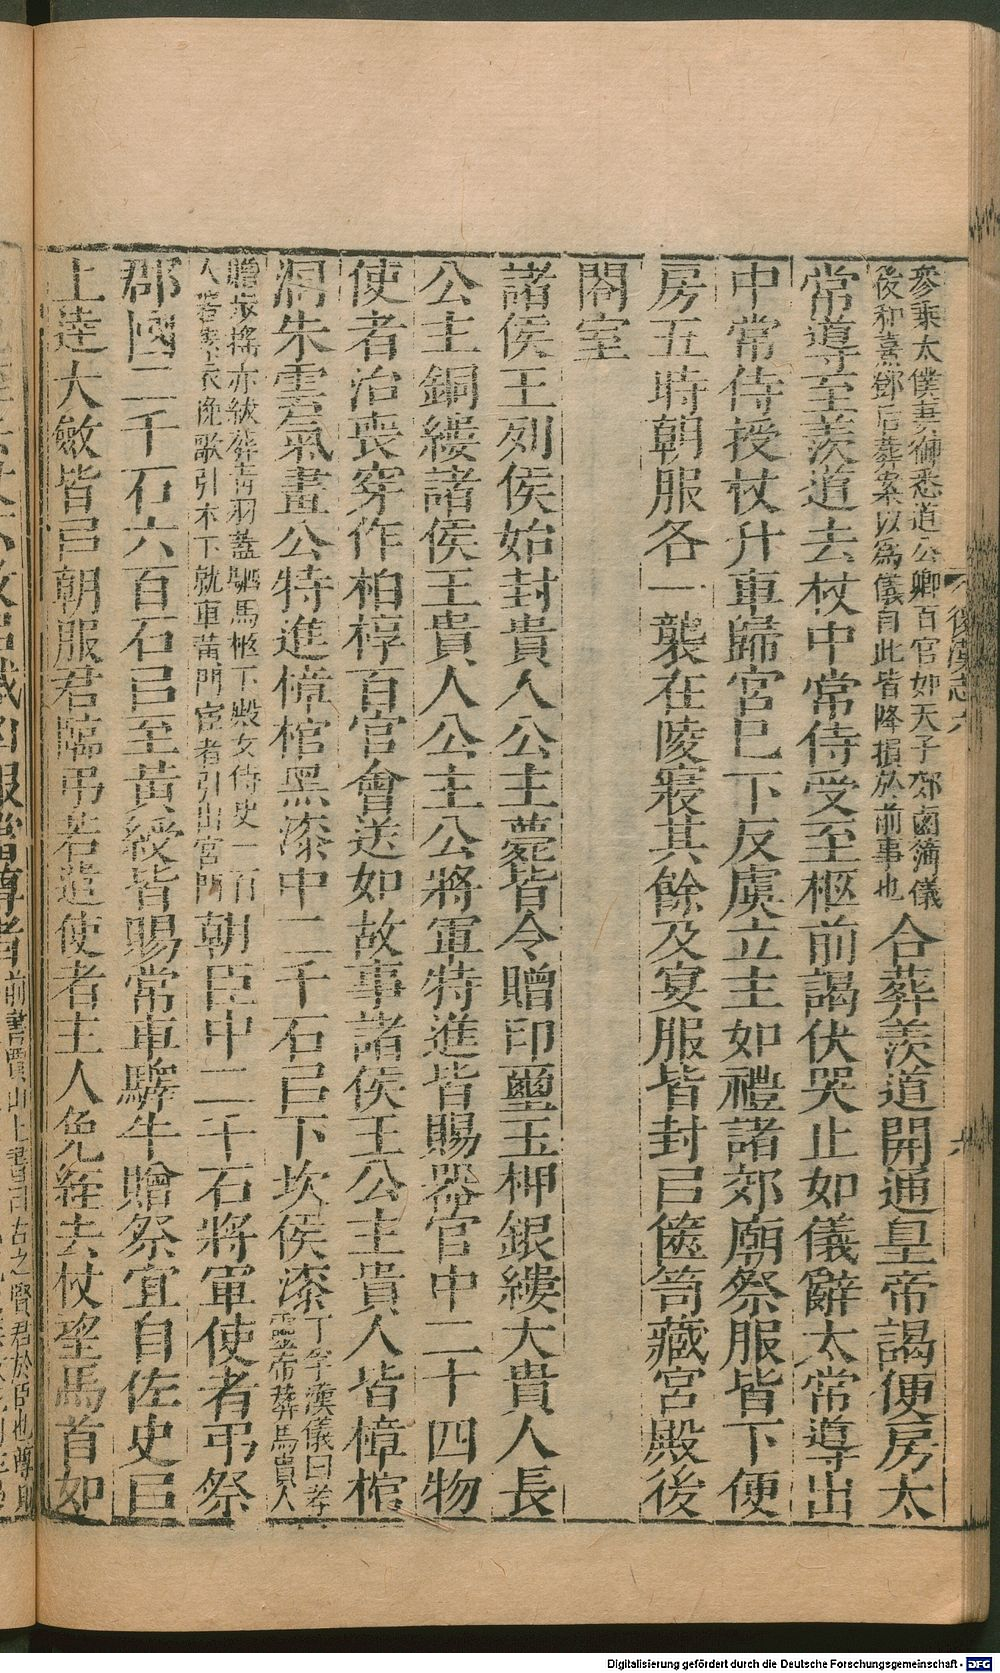 後漢志六
參乘太僕妻御悉道公卿百官如天子郊鹵簿儀
後和熹鄧后葬案以爲儀自此皆降損於前事也
合葬羨道開通皇帝謁便房太
常導至羨道去杖中常侍受至柩前謁伏哭止如儀辭太常導出
中常侍授杖升車歸宮巳下反虞立主如禮諸郊廟祭服皆下便
房五時朝服各一襲在陵寢其餘及宴服皆封㠯篋笥藏宮殿後
閤室
諸侯王列侯始封貴人公主薨皆令贈印璽玉柙銀縷大貴人長
公主銅縷諸侯王貴人公主公將軍特進皆賜器官中二十四物
使者治喪穿作柏椁百官會送如故事諸侯王公主貴人皆樟棺
洞朱雲氣畫公特進樟棺黑漆中二千石㠯下坎侯漆
丁孚漢儀曰孝
靈帝葬馬貴人
贈步搖赤紱葬青羽蓋駟馬柩下殿女侍史一百
人著素衣挽歌引木下就車黃門宦者引出宮門
朝臣中二千石將軍使者弔祭
郡國二千石六百石㠯至黃綬皆賜常車驛牛贈祭宜自佐史㠯
上達大斂皆㠯朝服君臨弔若遣使者主人免絰去杖望馬首如
前書賈山上書曰古之賢君於臣也尊
Digitalisierung gefördert durch die Deutsche Forschungsgemeinschaft - DFG